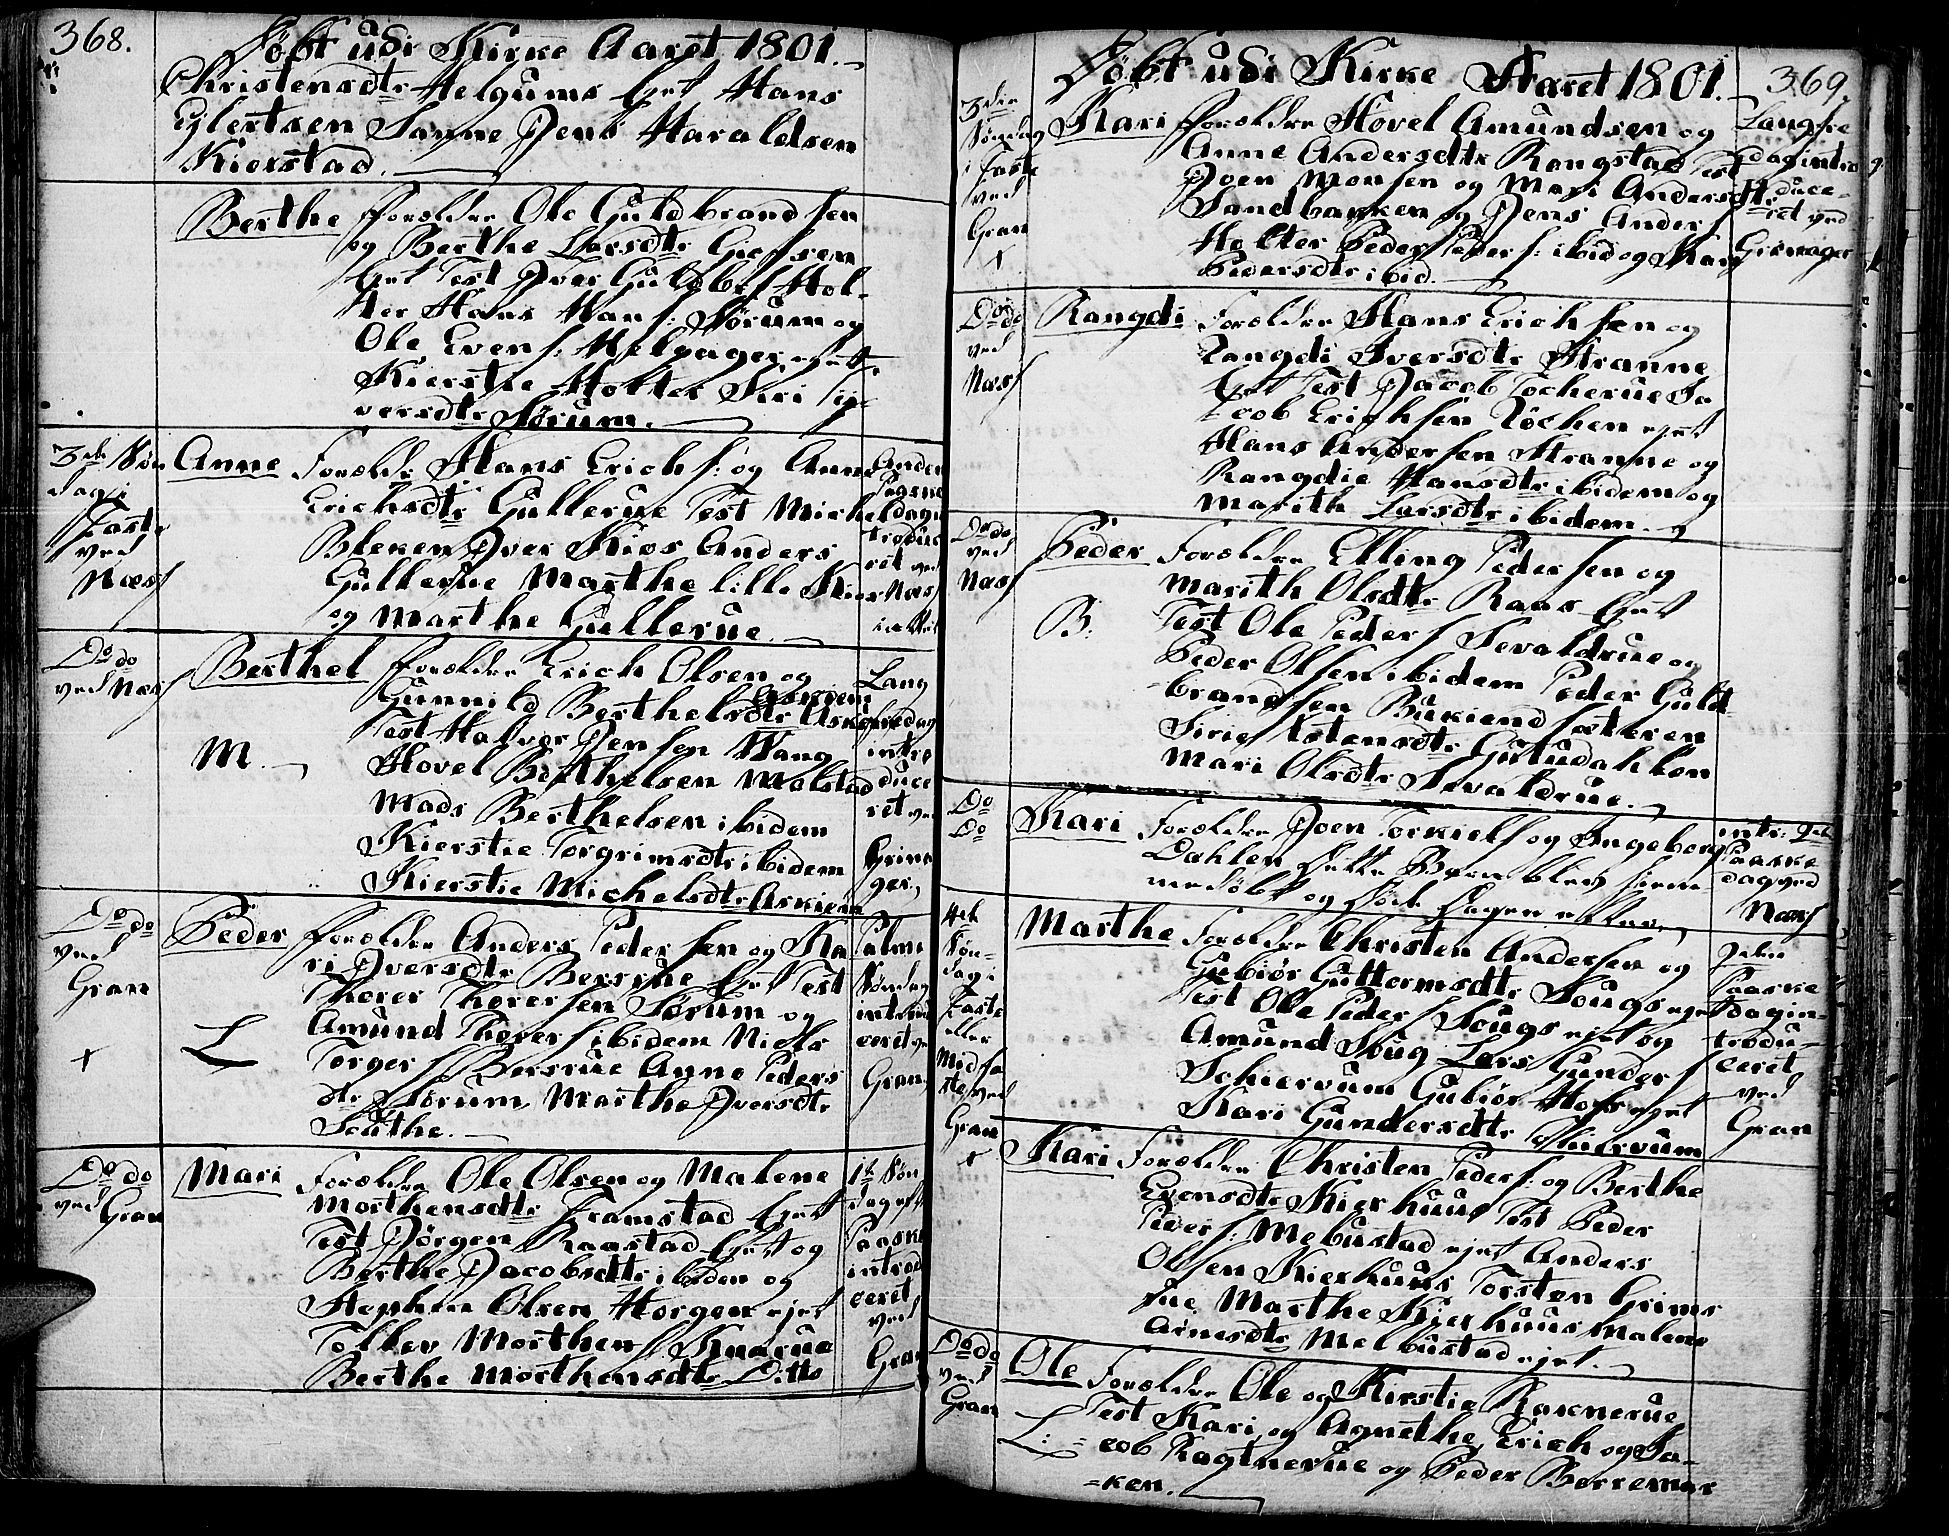 368.
Döbt udi Kirke Aaret 1801.
Christensdtr Helgums Ejet Hans
Ejlertsen Sanne Jens Haraldsen
Kierstad.
Berthe Forældre Ole Guldbrandsen
og Berthe Larsdtr
Ejet Test Iver Guldbrs Hol-
ter Hans Hans: Sørum og
Ole Evens: Melbager ejet
Kierstie Holter Siri Sy-
versdtr Sørum.
3die Søn
dag i
Faste
ved
Næss
Anne Forældr Hans Erichs: og Anne
Erichsdtr Gullerue Test Michel
Bleken Iver Kios Anders
Gullerue Marthe lille Kios
og Marthe Gullerue.
Anden
Paaske
dag in
troduce
ret ved
Næss
Do do
ved Næss
Berthel Forældre Erich Olsen og
Gunnild Berthelsdtr Askiem
Test Halvor Jensen Wang
M.
Hovel Berthelsen Molstad
Mads Berthelsen ibidem
Kierstie Torgrimsdtr ibidem
Kierstie Michelsdtr Askiem
Lang
fredag
intro
duce
ret ved
Grina
ger
Do do
ved
Gran
+
Peder Forældre Anders Pedersen og Ka
ri Iversdtr Bersrue Ejet Test
Thorer Thorersen Sørum og
L
Amund Thorers: ibidem Niels
Torgers Bersrue Anne Peders
dtr Sørum Marthe Iversdtr
Scuthe.
Palme
Søndag
introdu
ceret ved
Gran
Do do
ved Gran
Mari Forældre Ole Olsen og Malene
Morthensdtr Framstad Ejet
Test Jørgen Raastad Ejet og
Berthe Jacobsdtr ibidem og
Stephen Olsen Horgen ejet
Tollev Morthens Knarue
Berthe Morthensdtr Ditto
1te Søn
dag eft
Paaske
introd
ceret
ved
Gran
Döbt udi Kirke Aaret 1801. 369.
3die
Søndag
i Faste
ved
Gran
+
Kari Forældre Hovel Amundsen og
Anne Andersdtr Rongstad Test
Joen Monsen og Mari Andersdtr
Sandbakken og Jens Anders
Holter Peder Peders: ibid og Mari
Pedersdtr ibid.
Langfre
dag intro
duce-
ret ved
Grinager
Do do
ved
Næss
Rangdi Forældre Hans Erichsen og
Rangdi Iversdtr Stranne
Ejet Test Jacob Tocherue Ja
cob Erichsen Røchen ejet
Hans Andersen Stranne og
Rangdie Hansdtr ibidem og
Marith Larsdtr ibidem.
Do do
ved
Næss
Peder Forældre Elling Pedersen og
Marith Olsdtr Raas Ejet
B: Test Ole Peders Sevaldrue og
Peder Olsen ibidem Peder Guld-
brandsen Bukiend sæteren
Sirie Astensdtr Gutudahlen
Mari Olsdtr Sevaldrue.
Do
Do
Kari Forældre Joen Torkiels og Ingeborg
Dahlen dette Barn blev hjem-
medöbt og döde dagen efter.
intr: 2den
Paaske
dag ved
Næss
4de
Søn-
dag i
Faste
eller
Midfa
ste ved
Gran
+
Marthe Forældre Christen Andersen og
Gubiør Guttormsdtr Sougs ejet
Test Ole Peders Sougs ejet og
Amund Soug Lars Gunders
Schiervum Gubiør Hofs ejet
Kari Gundersdtr Skiervum
2den
Paaske
dag in-
trodu-
ceret
ved
Gran
Kari Forældre Christen Peders: og Berthe
Evensdtr Kierhuus Test Peder
Peders: Mebustad ejet Anders
Olsen Kierhuus Torsten Grims
rue Marthe Kierhuus Malene
Arnesdtr Melbustad ejet.
Do do
ved
Gran
Ole Forældre Ole og Kirstie Raknerue
L: Test Kari og Agnethe, Erich og Ja-
cob Ragtnerue og Peder Berremar
-ken.